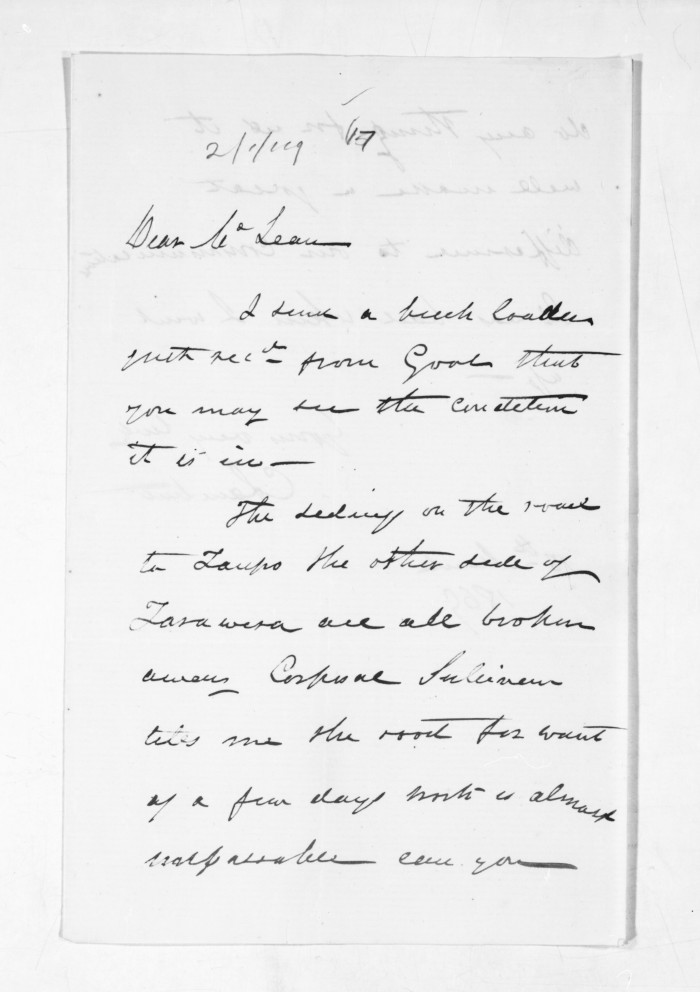 2/1/119 17
Dear McLean
I send a breech loader
just recd from Govt that
you may see the condition
it is in —
The sidings on the road
to Taupo the other side of
Tarawera are all broken
away Corporal Sulivan
tells me the road for want
of a few days work is almost
impassable can you